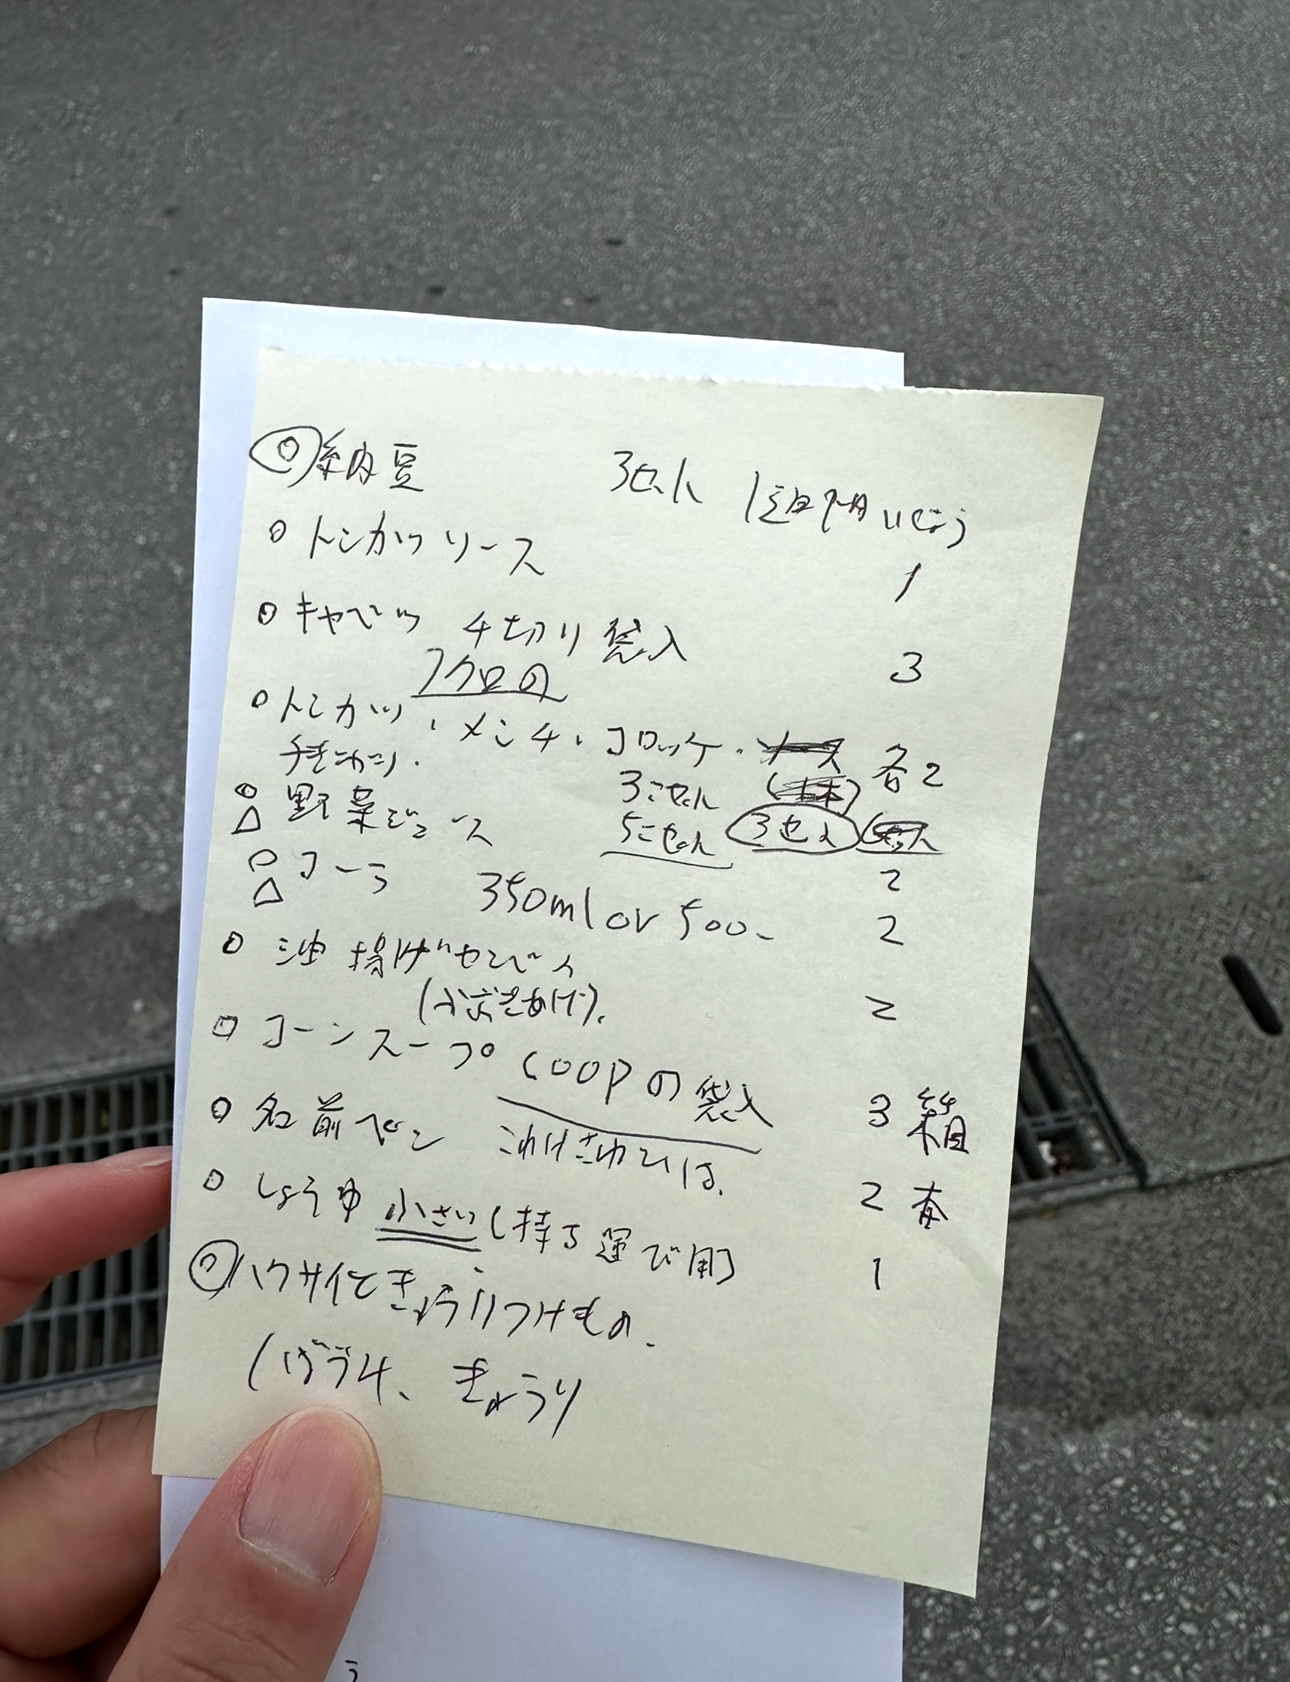 ◎納豆 3セット 1週間いじょう
○トンカツソース 1
○キャベツ 4切り 袋入 3
フクロの
○トンカツ・メンチ・コロッケ・ 各2
3こセット
○野菜ジュース 5こセット 3セット
2
○コーラ 350ml or 500- 2
○油揚げせんべい
(ぶぶきあげ). 2
○コーンスープ COOPの袋入 3箱
○名前ペン 2本
○しょうゆ 小さい(持ち運び用) 1
◎ハクサイときゅうりつけもの.
きゅうり